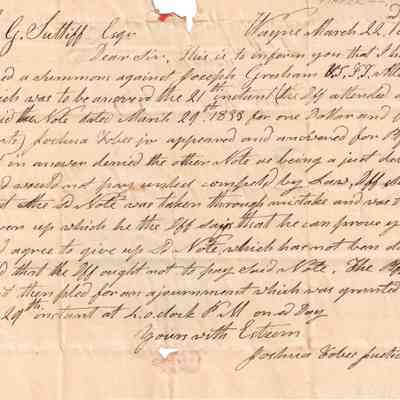 G. Sutliff Esqr Wayne March 22
Dear Sir, This is to inform you that I h
d a summons against Joseph Gresham
ch was to be answerd the 21st instant (the Dff attended a
id the Note dated March 29th 1838 for one Dollar and
Joshua Fobes jr appeared and answered for
in answer denied the other Note as being a just de
would not pay unless compeld by Law,
the Note was taken through mistake and was t
ven up which he the Dff says that he can prove y
I agree to give up Sd Note, which has not been d
d that the Dff ought not to pay said Note. The
t then pled for an ajournment which was granted
29th instant at 2,o,clock P M on sd Day
Yours with Esteem
Joshua Fobes Justic